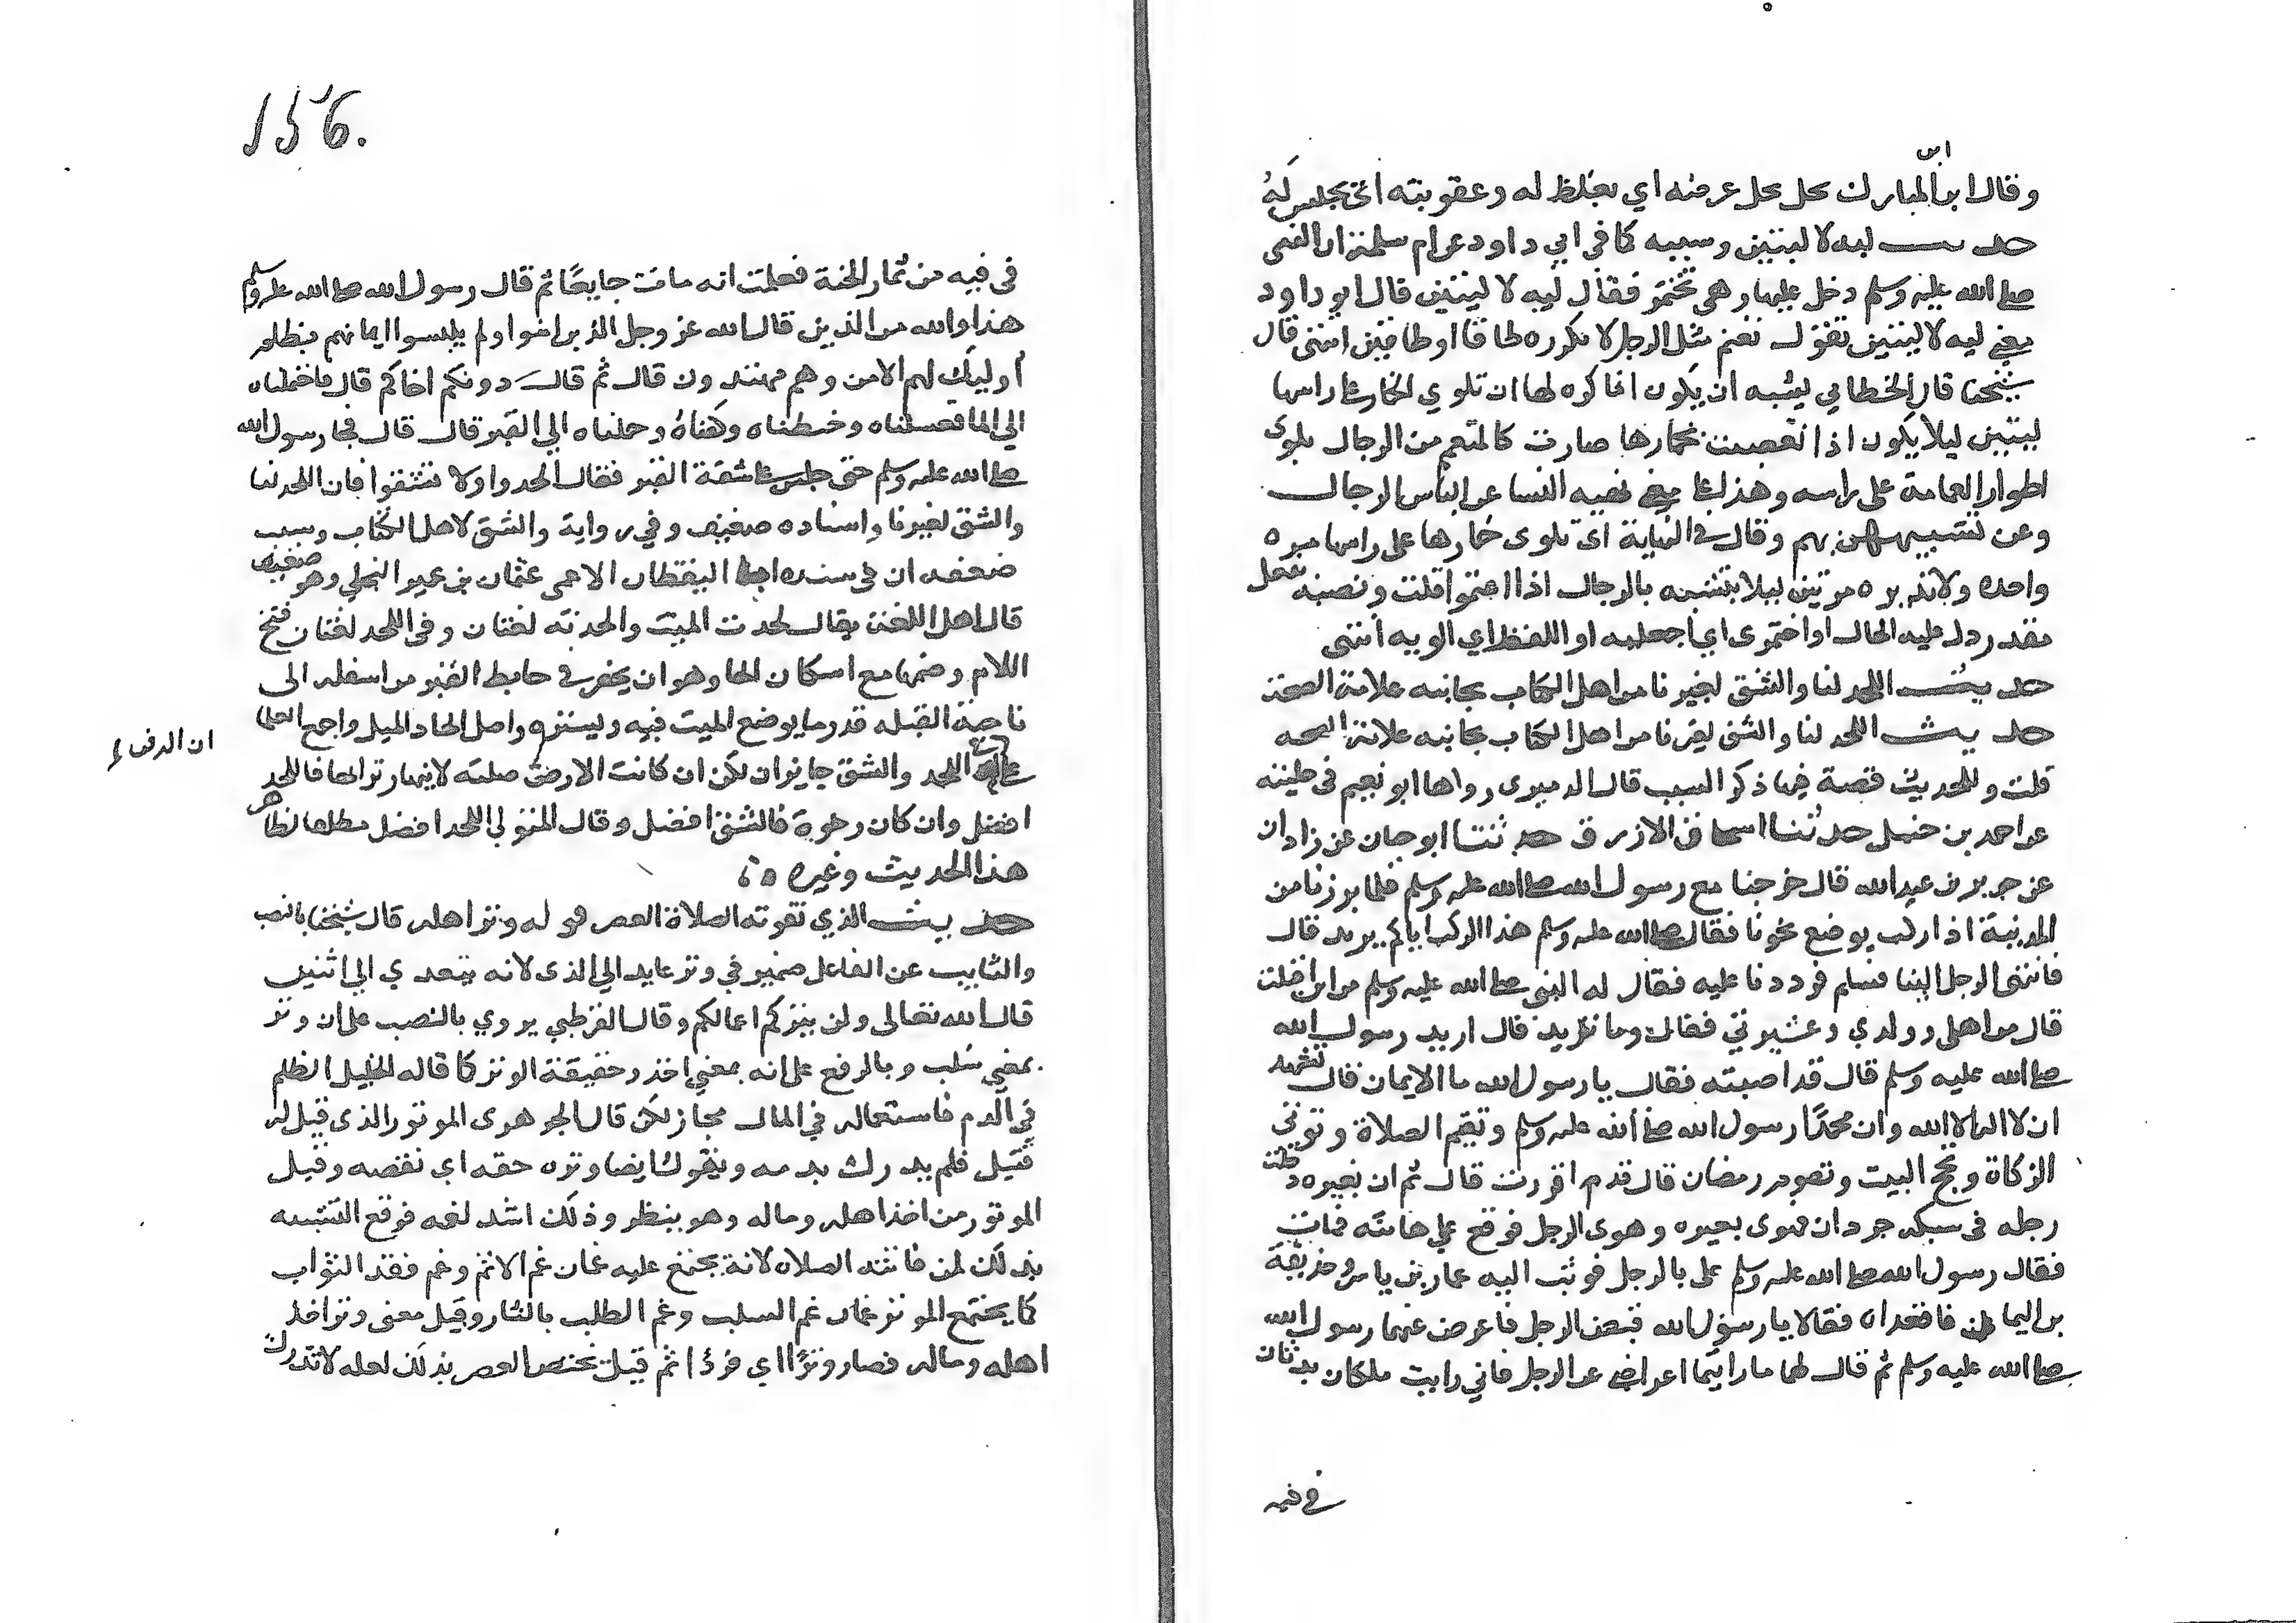 ابن
وقال ابن المبارك يحل يحل عرضه اي يغلظ له وعقوبته اي يحبس له
حديث ليه لا ليتين وسببه كما في ابي داود عن ام سلمة ان النبي
صلى الله عليه وسلم دخل عليها وهي تختمر فقال ليه لا ليتين قال ابو داود
معنى ليه لا ليتين تقول تعتم مثل الرجل لا تكرره طاقا او طاقين انتهى قال
شيخنا قال الخطابي يشبه ان يكون انما كره لها ان تلوي الخمار على راسها
ليتين ليلا يكون اذا تعصبت بخمارها صارت كالمتعمم من الرجال يلوي
اطوار العمامة على راسه وهذا على معنى نهيه النسا عن لباس الرجال
وعن تشبههن بهم وقال في النهاية اي تلوى خمارها على راسها مره
واحده ولا تديره مرتين ليلا يتشبه بالرجال اذا اعتموا قلت ونصبه بفعل
مقدر دل عليه الحال اواختمرى اي اجعليه او اللفظ اي الويه انتهى
حديث اللحد لنا والشق لغيرنا من اهل الكتاب بجانبه علامة الصحة
حديث اللحد لنا والشق لغيرنا من اهل الكتاب بجانبه علامة الصحه
قلت وللحديث قصة فيها ذكر السبب قال الدميري رواها ابو نعيم في حليته
عن احمد بن حنبل حدثنا اسحاق الازرق حدثنا ابو جان عن زاذان
عن جرير بن عبد الله قال خرجنا مع رسول الله صلى الله عليه وسلم فلما برزنا من
المدينة اذا راكب يوضع نحونا فقال صلى الله عليه وسلم هذا الراكب اياكم يريد قال
فانتهى الرجل الينا فسلم فرددنا عليه فقال له النبي صلى الله عليه وسلم من اين اقبلت
قال من اهلي وولدي وعشيرتي فقال وما تريد قال اريد رسول الله
صلى الله عليه وسلم قال قد اصبته فقال يا رسول الله ما الايمان قال تشهد
ان لا اله الا الله وان محمدًا رسول الله صلى الله عليه وسلم وتقيم الصلاة وتوتي
الزكاة وتحج البيت وتصوم رمضان قال قد اقررت قال ثم ان بعيره دخلت
رجله في سبكه جردان فهوى بعيره وهوى الرجل فوقع على هامته فمات
فقال رسول الله صلى الله عليه وسلم على بالرجل فوثب اليه عمار بن ياسر وحذيفة
بن اليمان فاقعداه فقالا يا رسول الله قبض الرجل فاعرض عنهما رسول الله
صلى الله عليه وسلم ثم قال لهما ما رايتما اعراضي عن الرجل فاني رايت ملكان يدثان
في فيه
156.
في فيه من ثمار الجنة فعلمت انه مات جايعًا ثم قال رسول الله صلى الله عليه وسلم
هذا والله من الذين قال الله عز وجل الذين امنوا ولم يلبسوا ايمانهم بظلم
اوليك لهم الامن وهم مهتدون قال ثم قال دونكم اخاكم قال فاحتملناه
الي الما فغسلناه وحنطناه وكفناه وحملناه الي القبر قال قال فجا رسول الله
صلى الله عليه وسلم حتى جلس على شقة القبر فقال الحدوا ولا تشقوا فان اللحد لنا
والشق لغيرنا واسناده ضعيف وفي رواية والشق لاهل الكتاب وسبب
ضعفه ان في سنده ابا اليقظان الاعمى عثمان بن عمير البجلي وهو ضعيف
قال اهل اللغة يقال لحدت الميت والحدته لغتان وفي اللحد لغتان فتح
اللام وضمها مع اسكان الحا وهو ان يحفر في حايط القبر من اسفله الى
ناحية القبله قدر ما يوضع الميت فيه ويستره واصل الحاد الميل واجمع العلما
على ان الدفن في اللحد والشق جايزان لكن ان كانت الارض صلبه لا ينهار ترابها فاللحد
افضل وان كان رخوة فالشق افضل وقال المتولي اللحد افضل مطلقا لظاهر
هذا الحديث وغيره
حديث الذي تفوته الصلاة العصر فهو له وتر اهله قال شيخنا بالنصب
والنايب عن الفاعل ضمير في وتر عايد الي الذى لانه يتعدي الي اثنين
قال الله تعالى ولن يتركم اعمالكم وقال القرطبي يروي بالنصب على ان وتر
بمعني سلب وبالرفع على انه بمعني اخذ وحقيقة الوتر كما قاله الخليل الظلم
في الدم فاستعماله في المال مجاز لكن قال الجوهرى الموتور الذى قتل له
قتيل فلم يدرك بدمه ويقول ايضا وتره حقه اي نقصه وقيل
الموتور من اخذ اهله وماله وهو ينظر وذلك اشد لغمه فوقع التشبيه
بذلك لمن فاتته الصلاه لانه يجتمع عليه غمان غم الاثم وغم فقد الثواب
كما يجتمع الموتور غمان غم السلب وغم الطلب بالثار وقيل معنى وتر اخذ
اهله وماله فصار وترًا اي فردًا ثم قيل تختص العصر بذلك لعله لا تدرك
ان الدفن